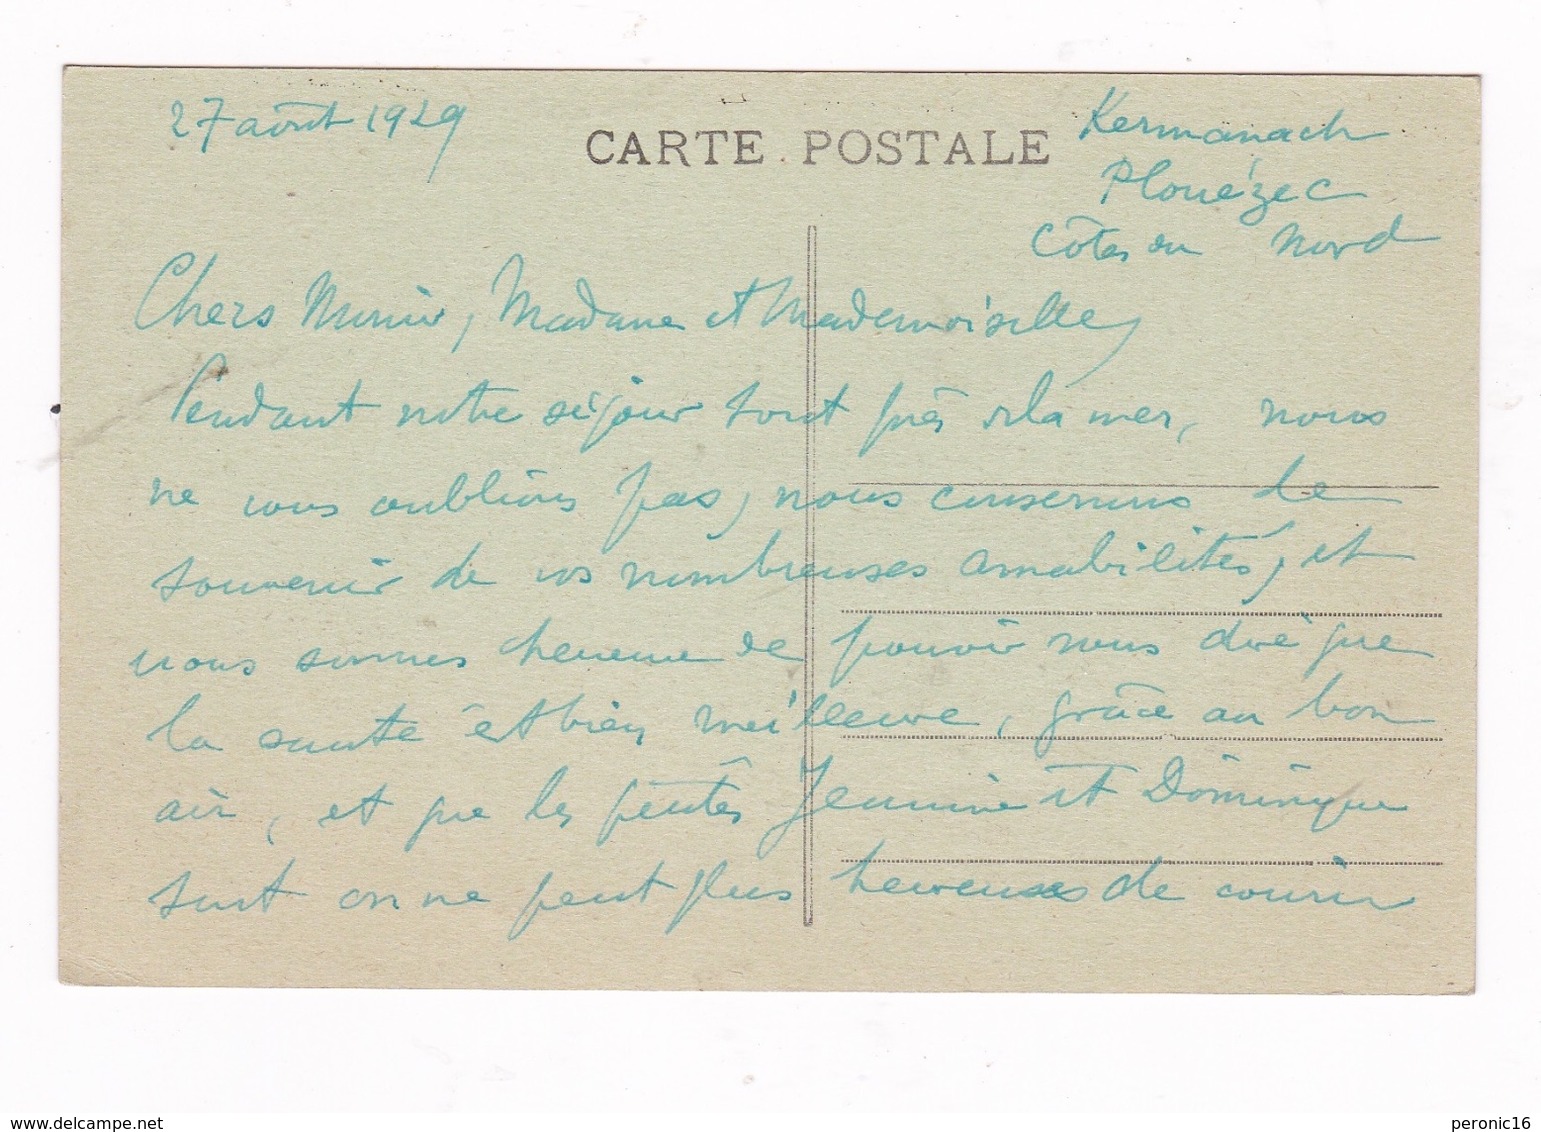 27 août 1929
CARTE POSTALE
Kermanach
Plouézec
Côtes du Nord
Chers Monsieur, Madame et Mademoiselle,
Pendant notre séjour tout près de la mer, nous
ne vous oublions pas, nous conservons le
souvenir de vos nombreuses amabilités, et
nous sommes heureux de pouvoir vous dire que
la santé est bien meilleure, grâce au bon
air, et que les petites Jeannine et Dominique
sont on ne peut plus heureuses de courir
www.delcampe.net
peronic16